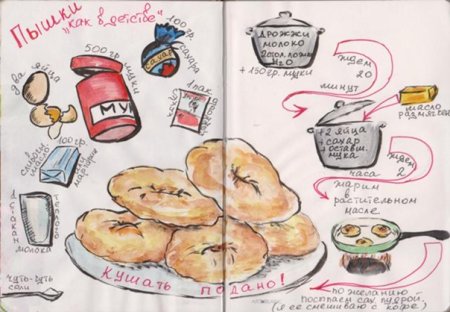 Пышки
"как в детстве"
два яйца
500 гр.
муки
МУ
100 гр.
сахара
сахар
1 пак.
100 гр.
сливоч.
масло
или
маргарин
1 стакан
молока
чуть-чуть
соли
Кушать подано!
дрожжи
молоко
2 стол. ложки
H2O
+ 150 гр. муки
ждем
20
минут
масло
размягч.
+ 2 яйца
+ сахар
+ оставш.
мука
ждем
2
часа
жарим
в
растительном
масле
по желанию
посыпаем сах. пудрой.
(я ее смешиваю с кофе)